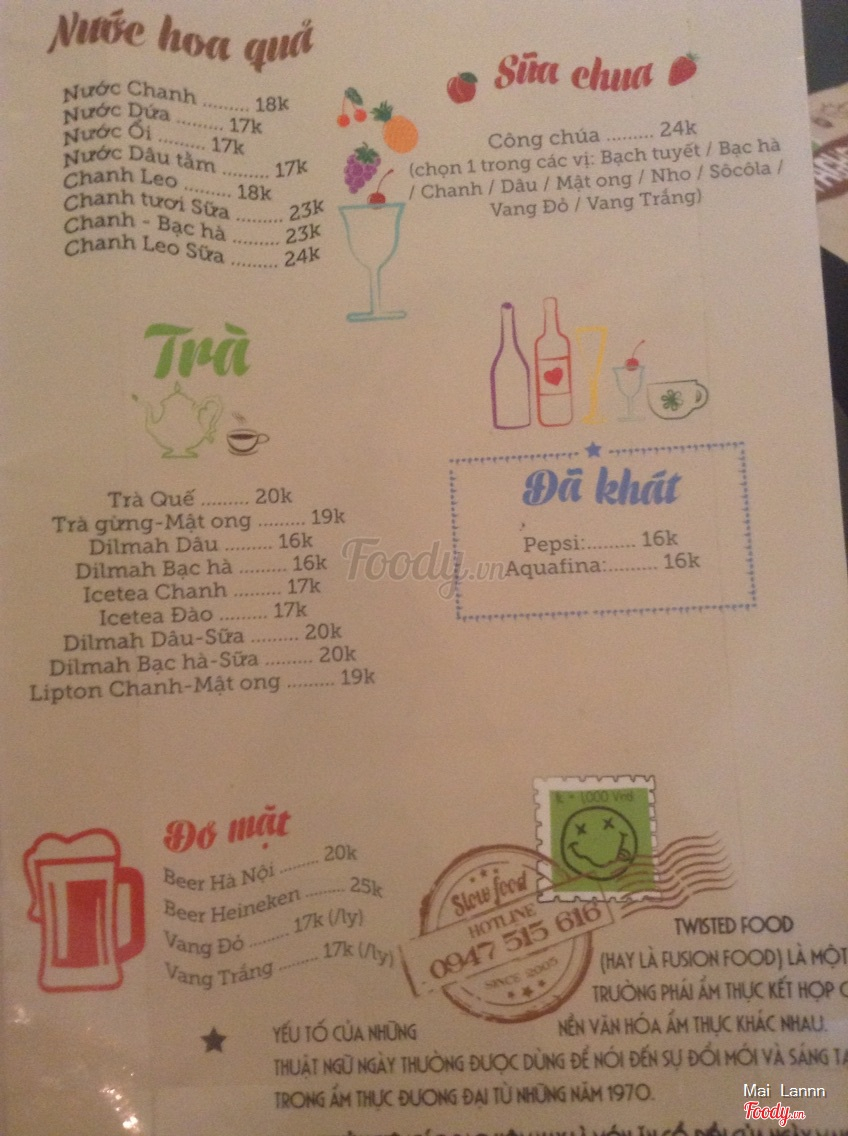 Nước hoa quả
Nước Chanh ......... 18k
Nước Dứa ......... 17k
Nước Ổi ......... 17k
Nước Dâu tằm ......... 17k
Chanh Leo ......... 18k
Chanh tươi Sữa ......... 23k
Chanh - Bạc hà ......... 23k
Chanh Leo Sữa ......... 24k
Sữa chua
Công chúa ......... 24k
(chọn 1 trong các vị: Bạch tuyết / Bạc hà
/ Chanh / Dâu / Mật ong / Nho / Sôcôla /
Vang Đỏ / Vang Trắng)
Trà
Trà Quế ......... 20k
Trà gừng-Mật ong ......... 19k
Dilmah Dâu ......... 16k
Dilmah Bạc hà ......... 16k
Icetea Chanh ......... 17k
Icetea Đào ......... 17k
Dilmah Dâu-Sữa ......... 20k
Dilmah Bạc hà-Sữa ......... 20k
Lipton Chanh-Mật ong ......... 19k
Đã khát
Pepsi:......... 16k
Aquafina:......... 16k
Foody.vn
Đỏ mặt
Beer Hà Nội ........ 20k
Beer Heineken ........ 25k
Vang Đỏ ........ 17k (/ly)
Vang Trắng ........ 17k (/ly)
1000 Vnd
Slow food
HOTLINE
0947 515 616
SINCE 2005
TWISTED FOOD
(HAY LÀ FUSION FOOD) LÀ MỘT
TRƯỜNG PHÁI ẨM THỰC KẾT HỢP
YẾU TỐ CỦA NHỮNG NỀN VĂN HÓA ẨM THỰC KHÁC NHAU.
THUẬT NGỮ NGÀY THƯỜNG ĐƯỢC DÙNG ĐỂ NÓI ĐẾN SỰ ĐỔI MỚI VÀ SÁNG TẠ
TRONG ẨM THỰC ĐƯƠNG ĐẠI TỪ NHỮNG NĂM 1970.
Mai Lannn
Foody.vn